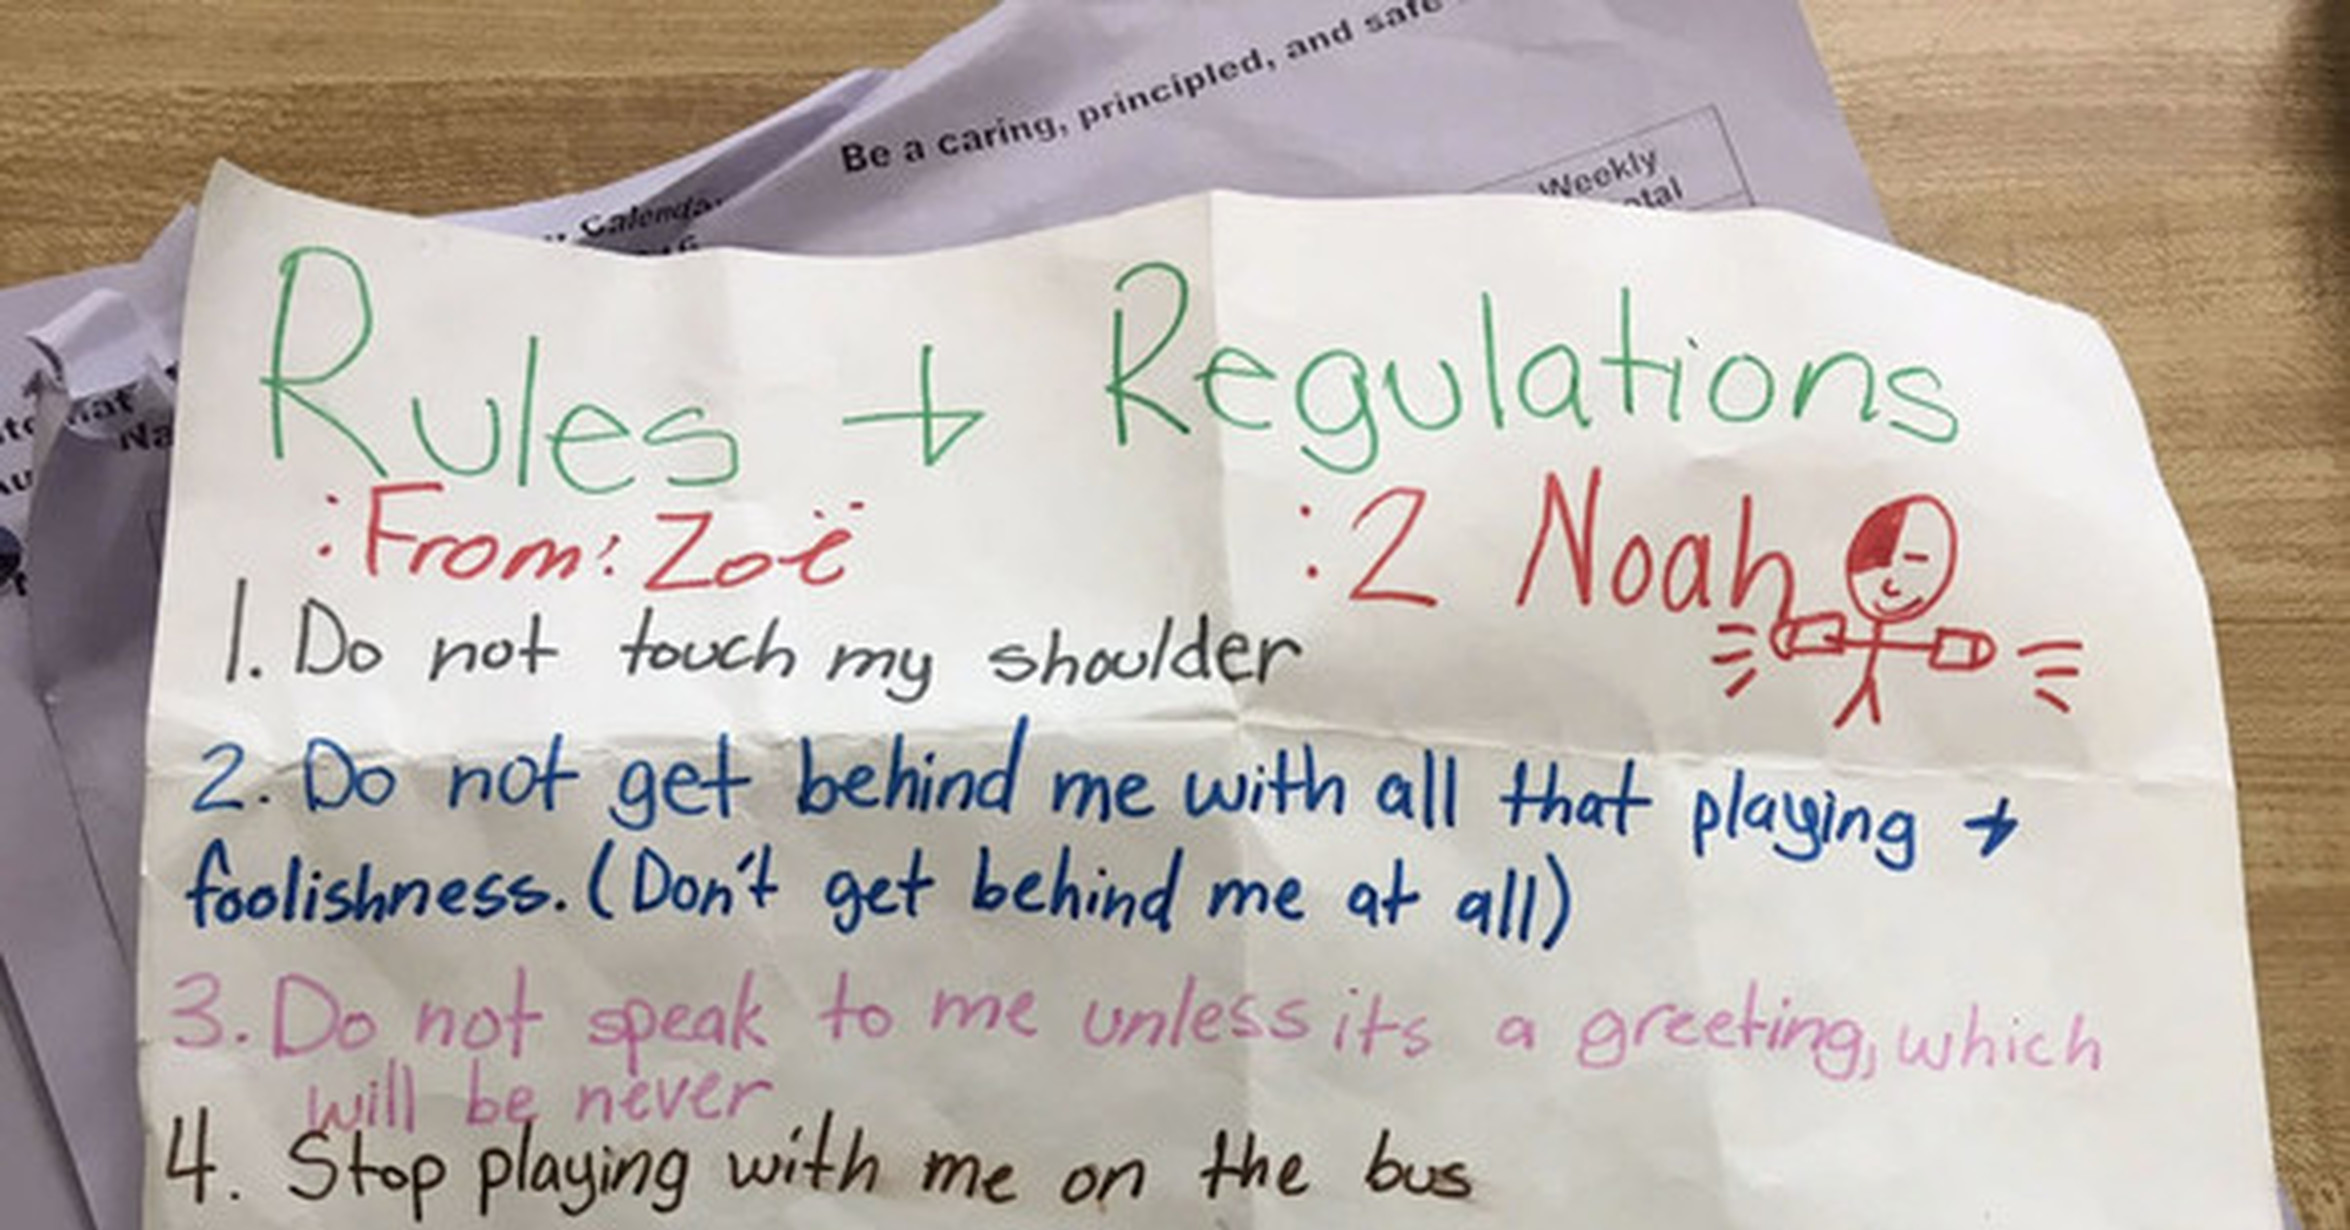 Be a caring, principled, and safe
Weekly
Rules + Regulations
:From: Zoë :2 Noah
1. Do not touch my shoulder
2. Do not get behind me with all that playing +
foolishness. (Don't get behind me at all)
3. Do not speak to me unless its a greeting, which
will be never
4. Stop playing with me on the bus